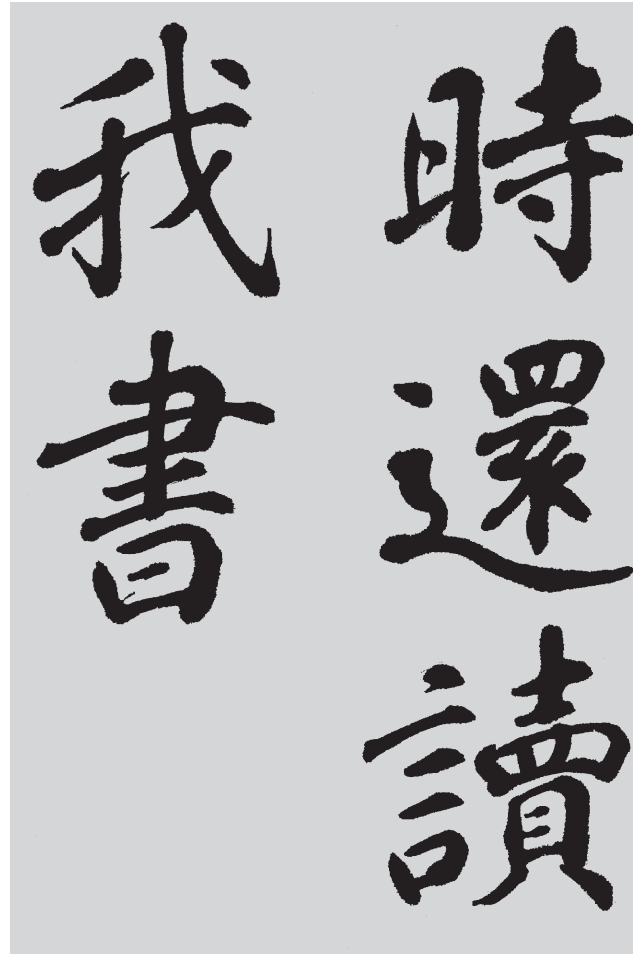 時還讀
我書